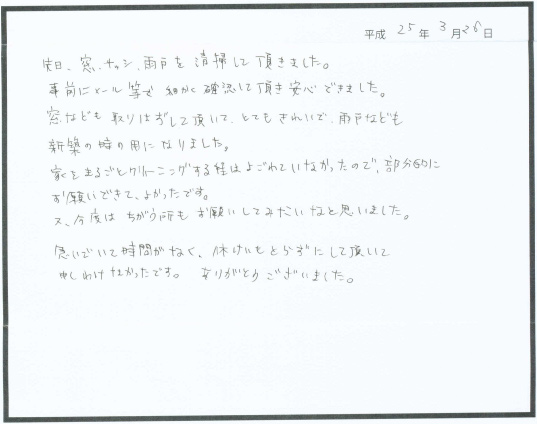 平成 25 年 3 月 26 日
先日、窓、サッシ、雨戸を清掃して頂きました。
事前にメール等で細かく確認して頂き安心できました。
窓なども取りはずして頂いて、とてもきれいで、雨戸なども
新築の時の用になりました。
家をまるごとクリーニングする程はよごれていなかったので、部分的に
お願いできて、よかったです。
又、今度はちがう所もお願いしてみたいなと思いました。
急いでいて時間がなく、休けいもとらずにして頂いて
申しわけなかったです。 ありがとうございました。